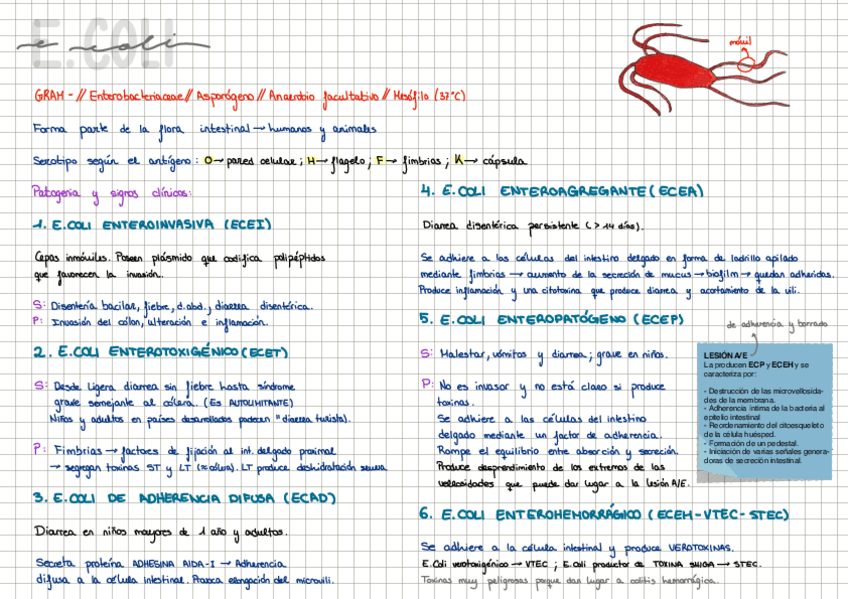 E.COLI
e coli
móvil
GRAM - // Enterobacteriaceae // Asporógeno // Anaerobio facultativo // Mesófila (37°C)
Forma parte de la flora intestinal → humanos y animales
Serotipo según el antígeno: O → pared celular; H → flagelo; F → fimbrias; K → cápsula
Patogenia y signos clínicos:
1. E.COLI ENTEROINVASIVA (ECEI)
Cepas inmóviles. Poseen plásmido que codifica polipéptidos
que favorecen la invasión.
S: Disentería bacilar, fiebre, d.abd., diarrea disentérica.
P: Invasión del cólon, ulteración e inflamación.
2. E.COLI ENTEROTOXIGÉNICO (ECET)
S: Desde ligera diarrea sin fiebre hasta síndrome
grave semejante al cólera. (Es AUTOLIMITANTE)
Niños y adultos en países desarrollados padecen "diarrea turista).
P: Fimbrias → factores de fijación al int. delgado proximal
→ segregan toxinas ST y LT (≈ cólera). LT produce deshidratación severa
3. E.COLI DE ADHERENCIA DIFUSA (ECAD)
Diarrea en niños mayores de 1 año y adultos.
Secreta proteína ADHESINA AIDA-I → Adherencia
difusa a la célula intestinal. Provoca elongación del microvili.
4. E.COLI ENTEROAGREGANTE (ECEA)
Diarrea disentérica persistente (> 14 días).
Se adhiere a las células del intestino delgado en forma de ladrillo apilado
mediante fimbrias → aumento de la secreción de mucus → biofilm → quedan adheridas.
Produce inflamación y una citotoxina que produce diarrea y acortamiento de la vili.
5. E.COLI ENTEROPATÓGENO (ECEP)
S: Malestar, vómitos y diarrea; grave en niños.
P: No es invasor y no está claro si produce
toxinas.
Se adhiere a las células del intestino
delgado mediante un factor de adherencia.
Rompe el equilibrio entre absorción y secreción.
Produce desprendimiento de los extremos de las
vellosidades que puede dar lugar a la lesión A/E.
de adherencia y borrado
LESIÓN A/E
La producen ECP y ECEH y se
caracteriza por:
- Destrucción de las microvellosida-
des de la membrana.
- Adherencia íntima de la bacteria al
epitelio intestinal
- Reordenamiento del citoesqueleto
de la célula huésped.
- Formación de un pedestal.
- Iniciación de varias señales genera-
doras de secreción intestinal.
6. E.COLI ENTEROHEMORRÁGICO (ECEH-VTEC-STEC)
Se adhiere a la célula intestinal y produce VEROTOXINAS.
E.Coli verotoxigénico → VTEC ; E.Coli productor de TOXINA SHIGA → STEC.
Toxinas muy peligrosas porque dan lugar a colitis hemorrágica.